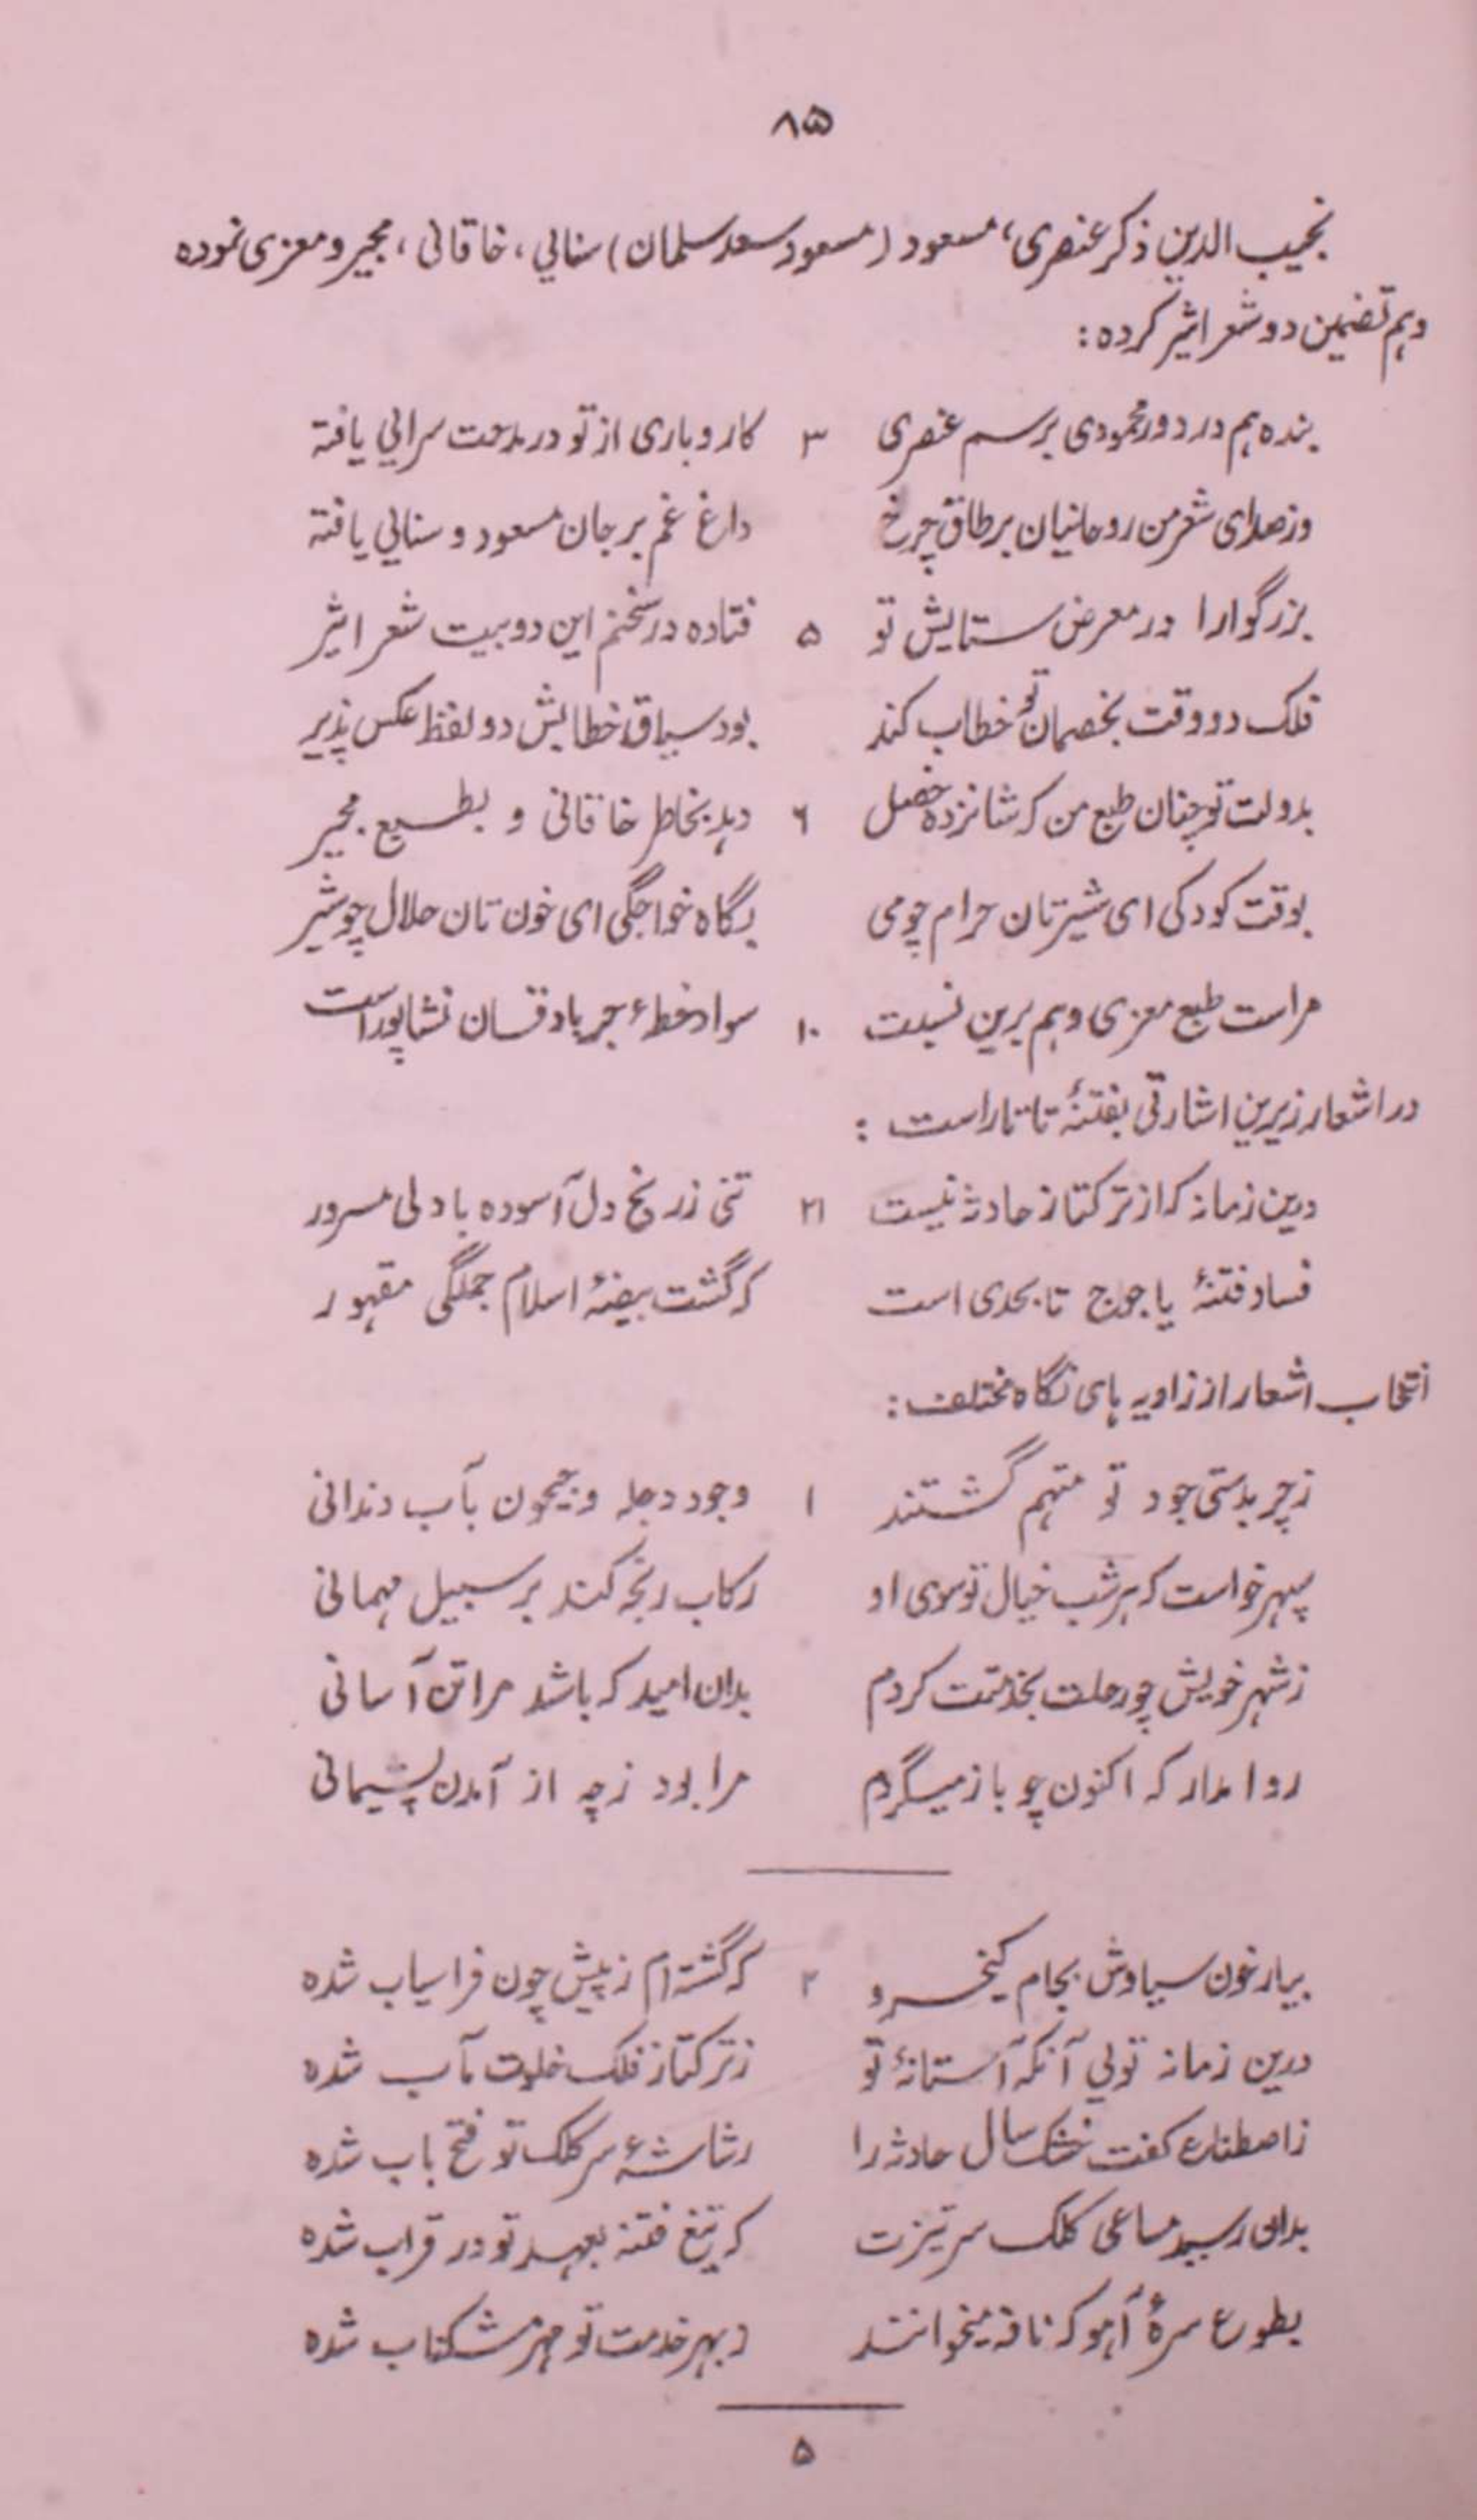 ۸۵
نجیب الدین ذکر عنصری، مسعود (مسعود سعد سلمان) سنایی، خاقانی، مجیر و معزی نموده
وہم تضمین دو شعر اثیر کرده:
بنده ہم در دور محمودی برسم عنصری ۳ کار و باری از تو در مدحت سرایی یافتہ
وز صدای شعر من روحانیان بر طاق چرخ داغ غم بر جان مسعود و سنایی یافتہ
بزرگوارا در معرض ستایش تو ۵ فتاده در سخنم این دو بیت شعر اثیر
فلک دو وقت بخصمان تو خطاب کند بود سیاق خطابش دو لفظ عکس پذیر
بدولت تو چنان طبع من کہ شانزده خصل ۶ دہد بخاطر خاقانی و بطبع مجیر
بوقت کودکی ای شیرتان حرام چو می بگاه خواجگی ای خون تان حلال چو شیر
مراست طبع معزی و ہم برین نسبت ۱۰ سواد خطۂ جرباذقان نشاپور است
در اشعار زیرین اشارتی بفتنۂ تاتار است:
درین زمانہ کہ از ترکتاز حادثہ نیست ۲۱ تنی ز رنج دل آسوده یا دلی مسرور
فساد فتنۂ یاجوج تا بحدی است کہ گشت بیضۂ اسلام جملگی مقہور
انتخاب اشعار از زاویہ ہای نگاه مختلف:
ز چربدستی جود تو متہم گشتند ۱ وجود دجلہ و جیحون بآب دندانی
سپہر خواست کہ ہر شب خیال تو سوی او رکاب رنجہ کند بر سبیل مہمانی
ز شہر خویش چو رحلت بخدمتت کردم بدان امید کہ باشد مرا تن آسانی
روا مدار کہ اکنون چو باز میگردم مرا بود ز چہ از آمدن پشیمانی
بیار خون سیاوش بجام کیخسرو ۲ کہ گشتہ ام ز پیش چون فراسیاب شده
درین زمانہ تویی آنکہ آستانۂ تو ز ترکتاز فلک خلوت مآب شده
ز اصطناع کفت خشک سال حادثہ را رشاشۂ سر کلک تو فتح باب شده
بدان رسید مساعی کلک سر تیزت کہ تیغ فتنہ بعہد تو در قراب شده
بطوع سرۂ آہو کہ نافہ میخوانند ز بہر خدمت تو مہر مشکناب شده
۵